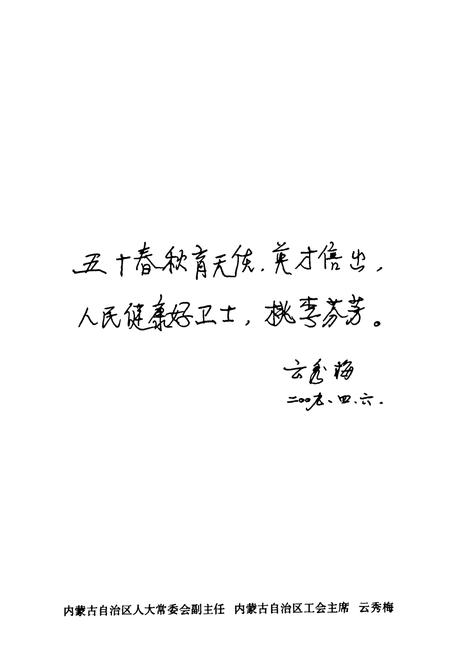 五十春秋育天使，英才倍出，
人民健康好卫士，桃李芬芳。
云秀梅
二〇〇九、四、六．
内蒙古自治区人大常委会副主任 内蒙古自治区工会主席 云秀梅